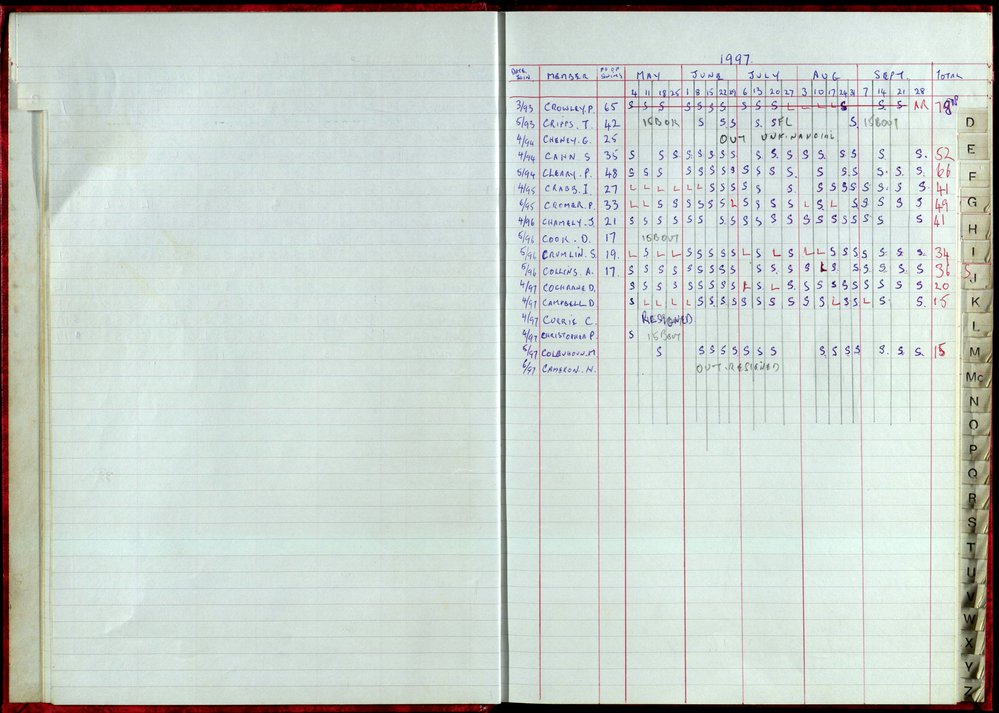 1997
DATE JOIN MEMBER NO OF SWIMS MAY JUNE JULY AUG SEPT. TOTAL
4 11 18 25 1 8 15 22 29 6 13 20 27 3 10 17 24 31 7 14 21 28
3/93 CROWLEY.P. 65 S S S S S S S S S S S L L L L S S S AR
5/93 CRIPPS.T. 42 S S S S S S
4/94 CHENEY.G. 25 OUT UNFINANCIAL
4/94 CANN S 35 S S S S S S S S S S S S S S S S S S. 52
5/94 CLEARY.P. 48 S S S S S S S S S S S S. S. S S S S. S. S 66
4/95 CRABB.I. 27 L L L L L L S S S S S S S S S S S S S. S S 41
6/95 CROMER.P. 33 L L S S S S S S L S S S S L S L S S S S S 49
4/96 CHAMELY.J. 21 S S S S S S S S S S S S S S S S S S S S 41
5/96 COOK.D. 17
5/96 CRUMLIN.S. 19. L S L L S S S S S L S L S L L S S S S S S S 34
5/96 COLLINS.A. 17. S S S S S S S S S S S. S S L S. S S S. S S 36
4/97 COCHRANE D. S S S S S S S S S L S L S S S S S S S S S S 20
4/97 CAMPBELL D S L L L L S S S S S S S S S S L S S L S S. 15
4/97 CURRIE C. RESIGNED
4/97 CHRISTOPHER P. S
5/97 COLQUHOUN.M S S S S S S S S S S S S S. S. S. 15
6/97 CAMERON.N. OUT.RESIGNED
D
E
F
G
H
I
J
K
L
M
Mc
N
O
P
Q
R
S
T
U
V
W
X
Y
Z